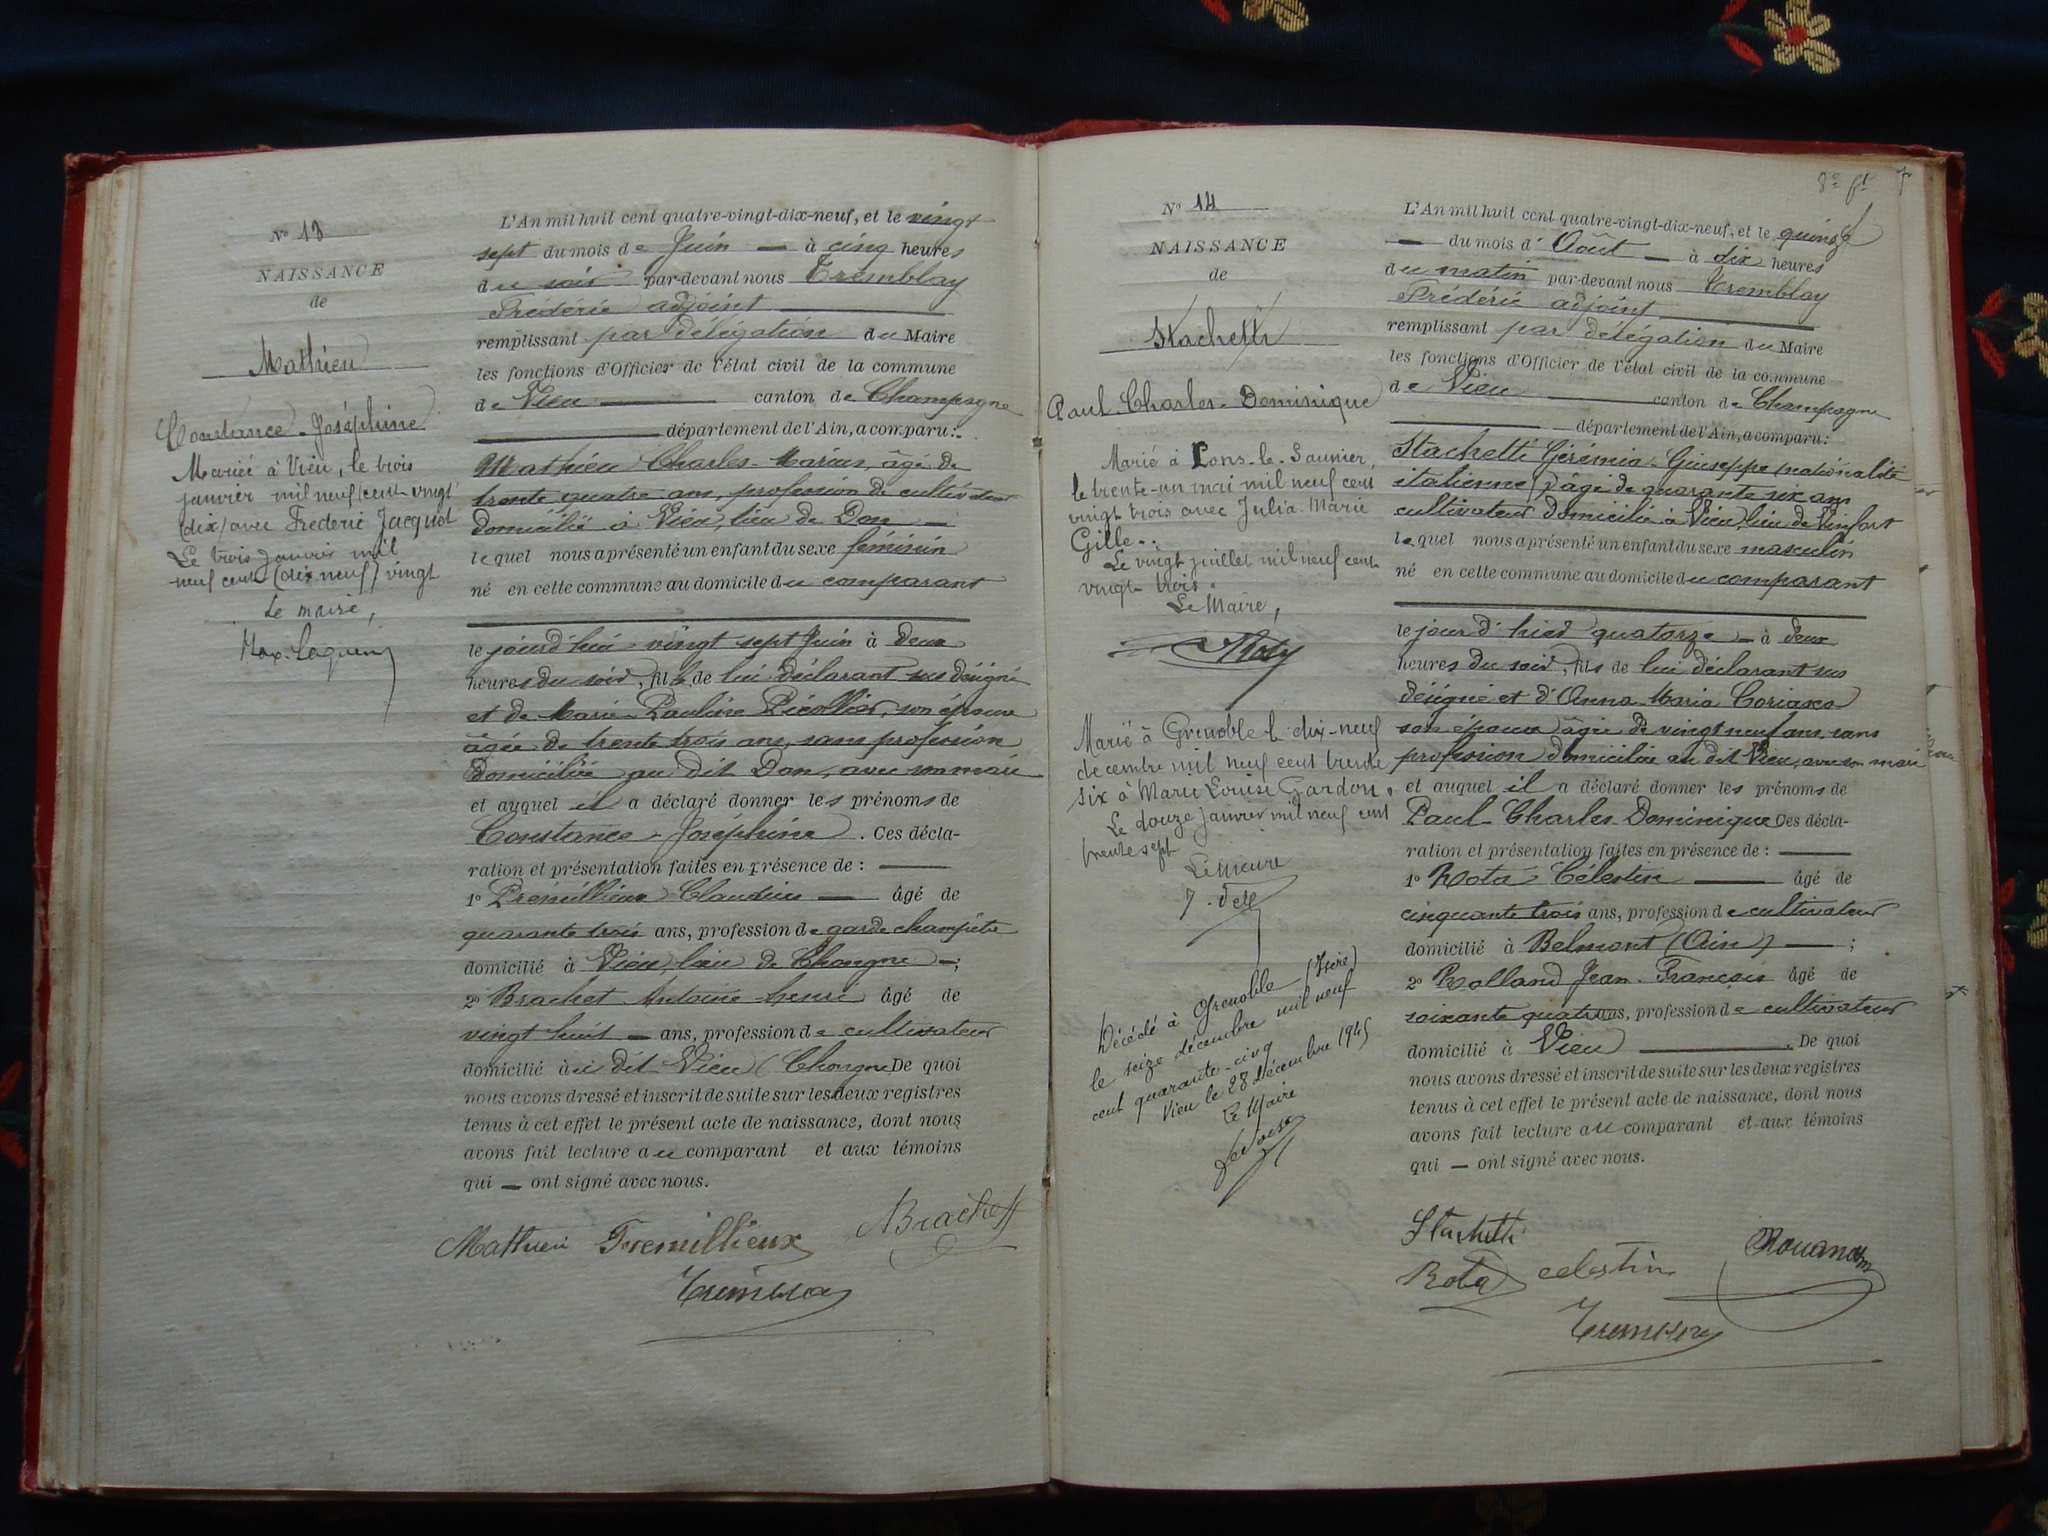 Nº 13
NAISSANCE
de
Mathieu
Constance-Joséphine
Mariée à Vieu, le trois
janvier mil neuf cent vingt
(dix) avec Frederic Jacquot
Le trois janvier mil
neuf cent (dix neuf) vingt
Le maire,
L'An mil huit cent quatre-vingt-dix-neuf, et le vingt
sept du mois de Juin — à cinq heures
du soir par-devant nous Tremblay
Frédéric adjoint
remplissant par délégation du Maire
les fonctions d'Officier de l'état civil de la commune
de Vieu — canton de Champagne
département de l'Ain, a comparu:
Mathieu Charles-Marius, âgé de
trente quatre ans, profession de cultivateur
domicilié à Vieu, lieu de Don —
lequel nous a présenté un enfant du sexe féminin
né en cette commune au domicile du comparant
le jourd'hui vingt sept Juin à deux
heures du soir, fille de lui déclarant sus désigné
et de Marie-Pauline Picollier, son épouse
âgée de trente trois ans, sans profession
domiciliée au dit Don, avec son mari
et auquel il a déclaré donner les prénoms de
Constance-Joséphine. Ces décla-
ration et présentation faites en présence de : —
1º Premillieux Claudius — âgé de
quarante trois ans, profession de garde champêtre
domicilié à Vieu, lieu de Chongne —;
2º Brachet Antoine henri âgé de
vingt huit — ans, profession de cultivateur
domicilié au dit Vieu (Chongne De quoi
nous avons dressé et inscrit de suite sur les deux registres
tenus à cet effet le présent acte de naissance, dont nous
avons fait lecture au comparant et aux témoins
qui — ont signé avec nous.
Mathieu Premillieux ABrachet
Tremblay
Nº 14
NAISSANCE
de
Stachetti
Paul-Charles-Dominique
Marié à Lons-le-Saunier,
le trente-un mai mil neuf cent
vingt trois avec Julia-Marie
Gille..
Le vingt juillet mil neuf cent
vingt trois.
Le Maire,
Marié à Grenoble le dix-neuf
decembre mil neuf cent trente
six à Marie Louise Gardon.
Le douze janvier mil neuf cent
trente sept
Le Maire
Décédé à Grenoble (Isère)
le seize décembre mil neuf
cent quarante-cinq
Vieu le 28 décembre 1945
Le Maire
L'An mil huit cent quatre-vingt-dix-neuf, et le quinze
— du mois d'Août — à dix heures
du matin par-devant nous Tremblay
Frédéric adjoint
remplissant par délégation du Maire
les fonctions d'Officier de l'état civil de la commune
de Vieu — canton de Champagne
— département de l'Ain, a comparu:
Stachetti Gérémia-Giuseppe nationalité
italienne, âgé de quarante six ans
cultivateur domicilié à Vieu, lieu de
lequel nous a présenté un enfant du sexe masculin
né en cette commune au domicile du comparant
le jour d'hier quatorze — à deux
heures du soir, fils de lui déclarant sus
désigné et d'Anna Maria Coriasco
son épouse âgée de vingt neuf ans sans
profession domiciliée au dit Vieu, avec son mari
et auquel il a déclaré donner les prénoms de
Paul-Charles-Dominique Ces décla-
ration et présentation faites en présence de : —
1º Rota Célestin — âgé de
cinquante trois ans, profession de cultivateur
domicilié à Belmont (Ain) — ;
2º Rolland Jean-François âgé de
soixante quatre ans, profession de cultivateur
domicilié à Vieu —. De quoi
nous avons dressé et inscrit de suite sur les deux registres
tenus à cet effet le présent acte de naissance, dont nous
avons fait lecture au comparant et aux témoins
qui — ont signé avec nous.
Stachetti
Rota celestin
Tremblay